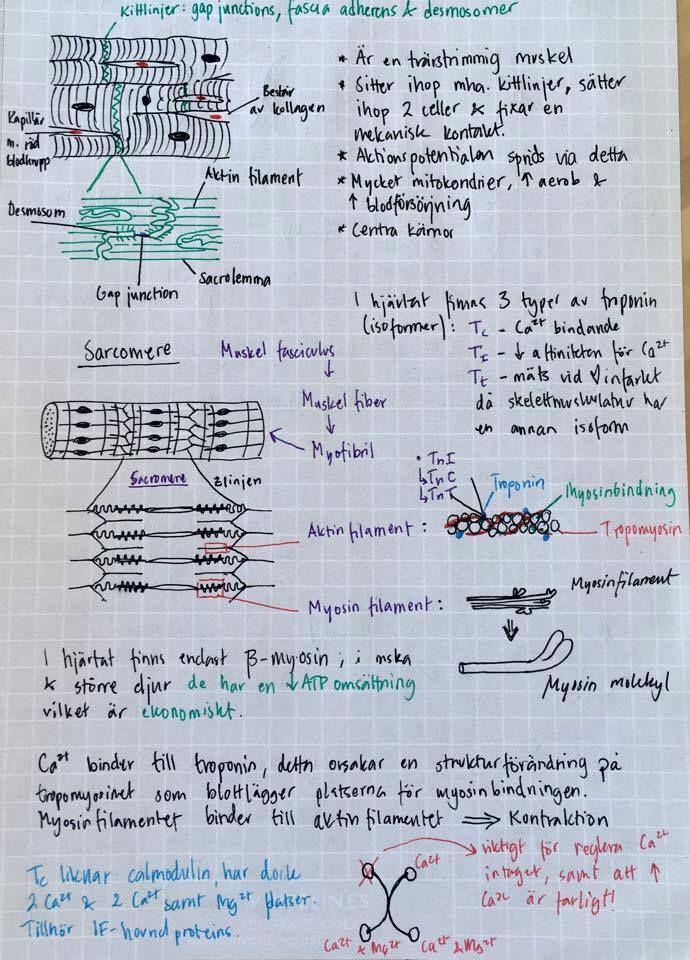 Kittlinjer: gap junctions, fascia adherens & desmosomer
Består
av kollagen
Kapillär
m. röd
blodkropp
Aktin filament
Desmosom
Sacrolemma
Gap junction
* Är en tvärstrimmig muskel
* Sitter ihop mha. kittlinjer, sätter
ihop 2 celler & fixar en
mekanisk kontakt.
* Aktionspotentialen sprids via detta
* Mycket mitokondrier, ↑ aerob &
↑ blodförsörjning
* Centra kärnor
I hjärtat finnas 3 typer av troponin
(isoformer): Tc - Ca2+ bindande
TI - ↓ affiniteten för Ca2+
Tt - mäts vid ♡infarkt
då skelettmuskulatur har
en annan isoform
Sarcomere
Muskel fasciculus
↓
Muskel fiber
↓
Myofibril
Sacromere
Zlinjen
• TnI
↳TnC
↳TnT
Troponin
Myosinbindning
Aktin filament:
Tropomyosin
Myosin filament:
Myosinfilament
Myosin molekyl
I hjärtat finns endast β-myosin, i
& större djur de har en ↓ATP omsättning
vilket är ekonomiskt.
Ca2+ binder till troponin, detta orsakar en strukturförändring på
tropomyosinet som blottlägger platserna för myosinbindningen.
Myosinfilamentet binder till aktin filamentet ⇒ Kontraktion
Tc liknar calmodulin, har dock
2 Ca2+ & 2 Ca2+ samt Mg2+ platser.
Tillhör proteins.
Ca2+
Ca2+ & Mg2+
Ca2+ & Mg2+
viktigt för reglera Ca2+
intaget, samt att ↑
Ca2+ är farligt!